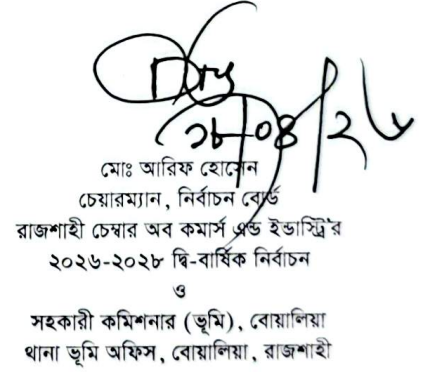 ২৮-০৪/২৬
মোঃ আরিফ হোসেন
চেয়ারম্যান, নির্বাচন বোর্ড
রাজশাহী চেম্বার অব কমার্স এন্ড ইন্ডাস্ট্রি'র
২০২৬-২০২৮ দ্বি-বার্ষিক নির্বাচন
ও
সহকারী কমিশনার (ভূমি), বোয়ালিয়া
থানা ভূমি অফিস, বোয়ালিয়া, রাজশাহী